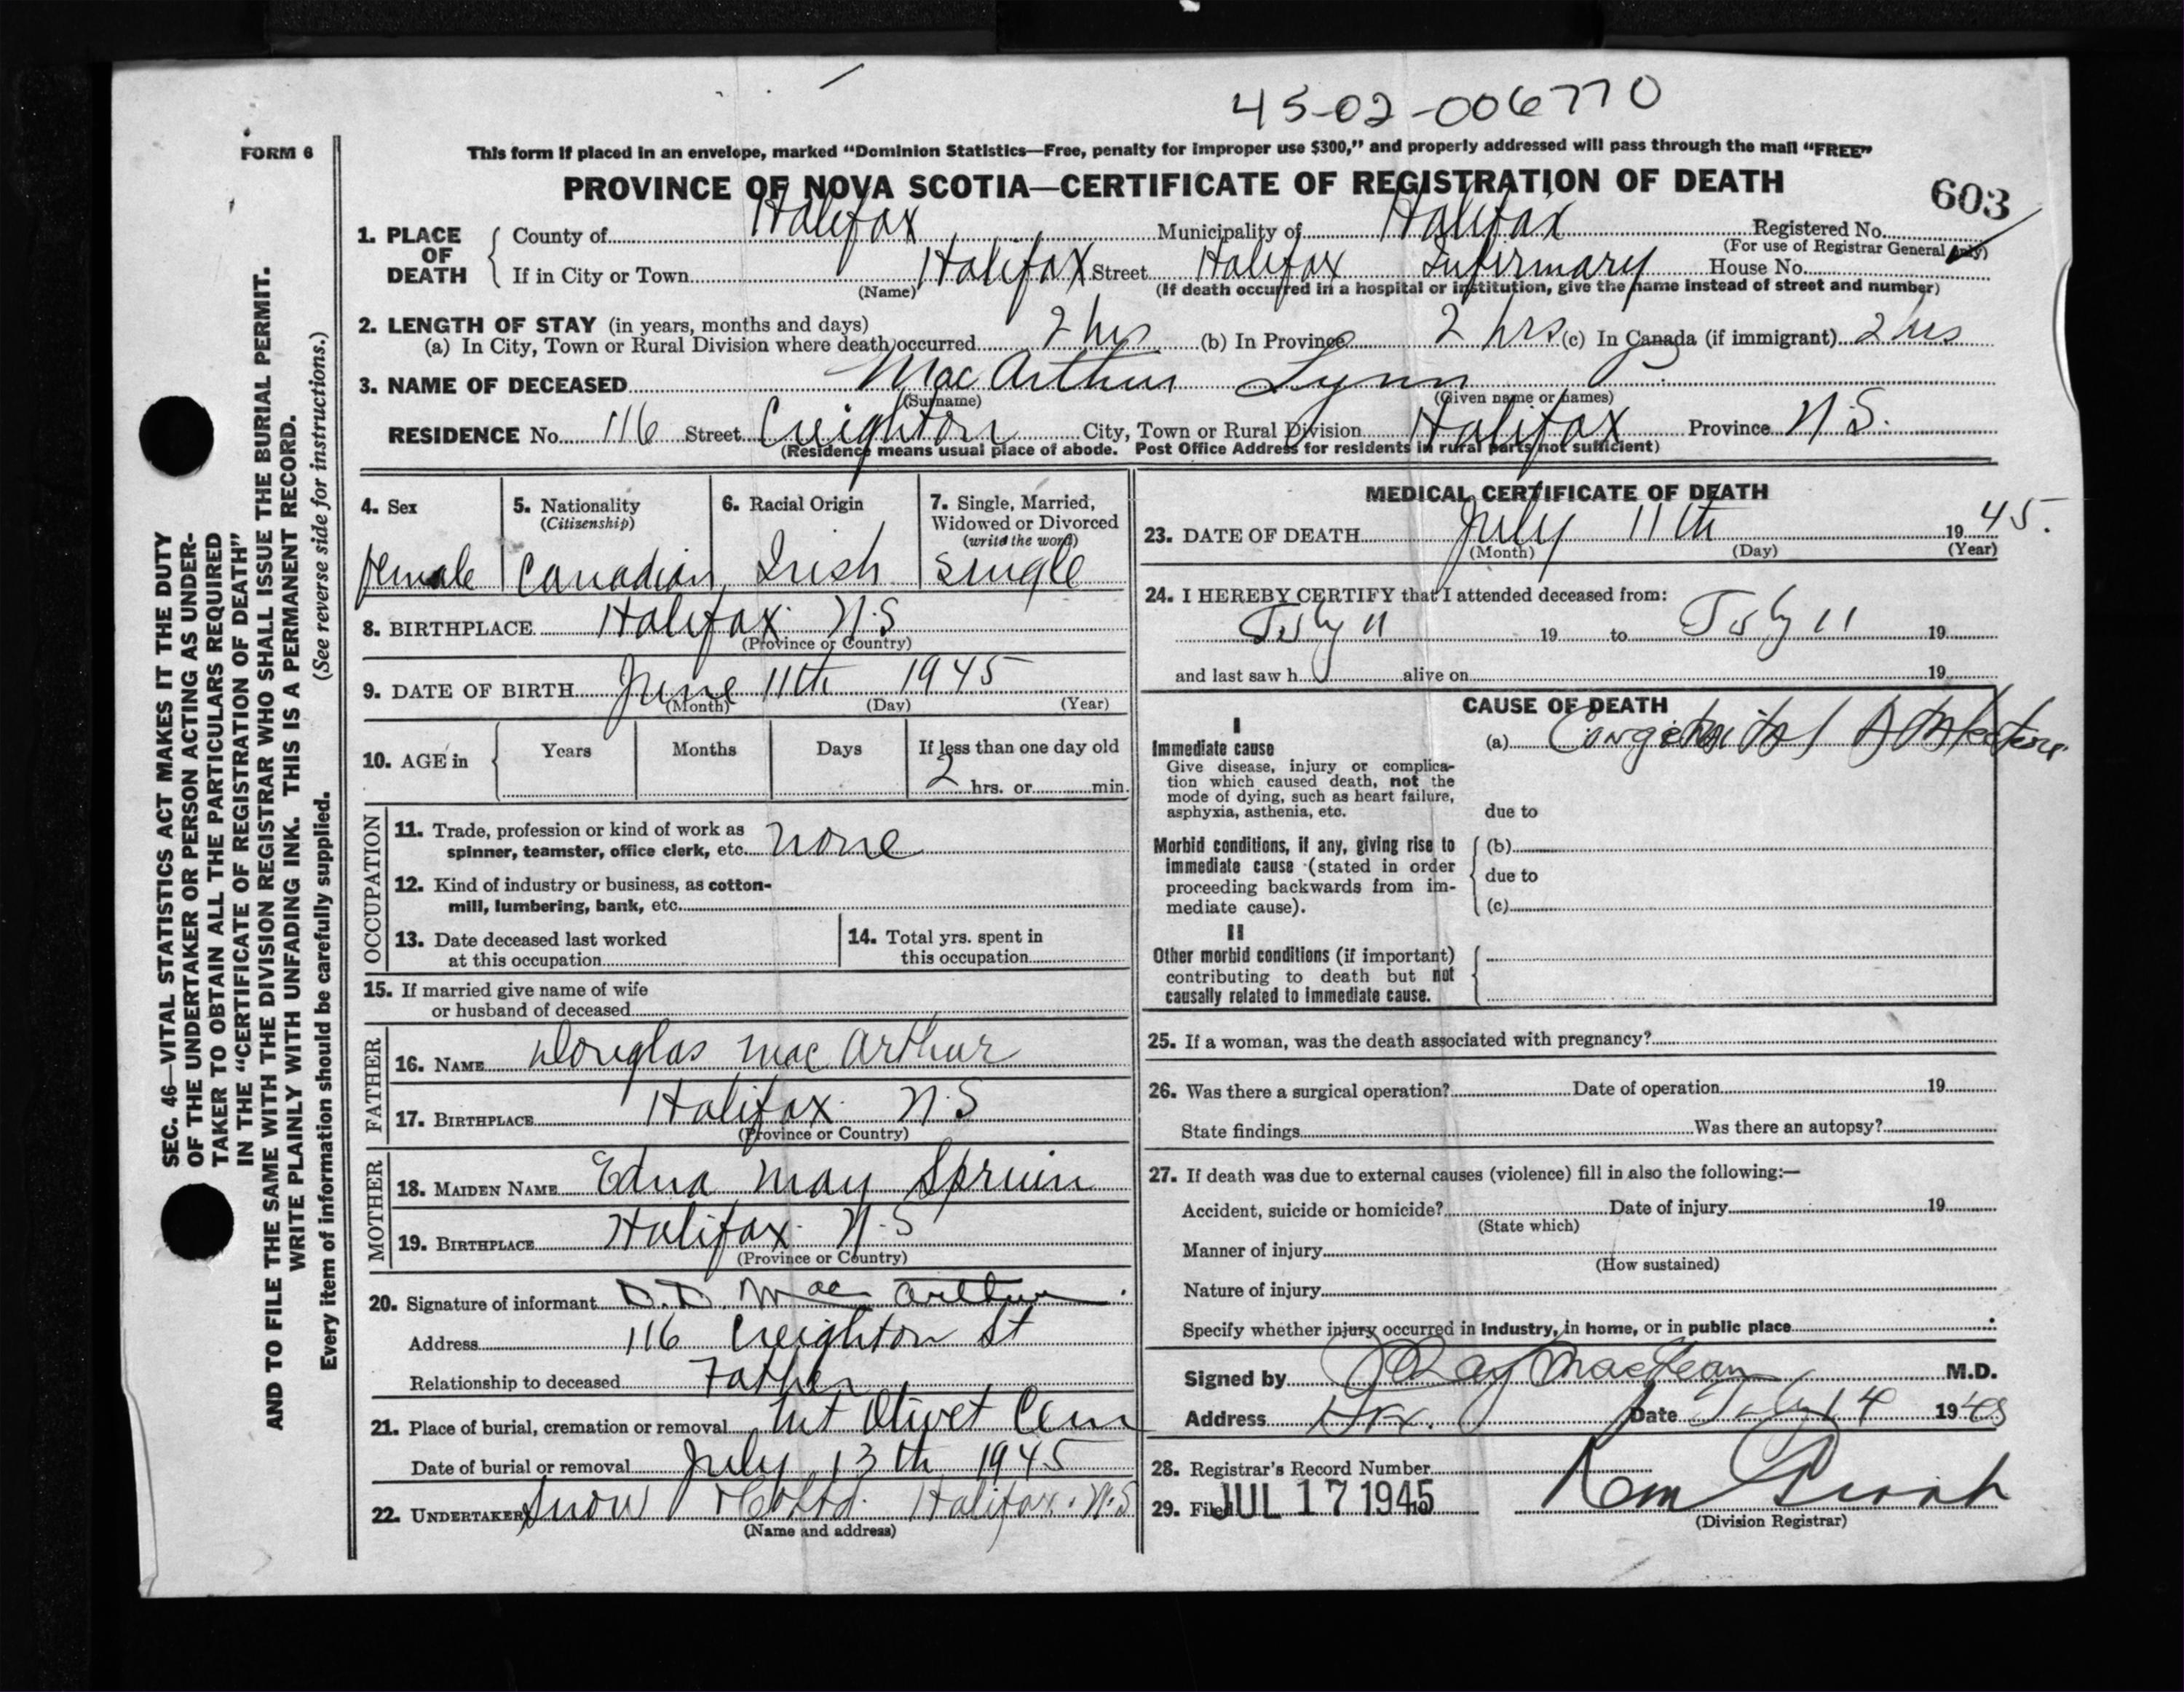 45-02-006770
FORM 6
This form if placed in an envelope, marked "Dominion Statistics—Free, penalty for improper use $300," and properly addressed will pass through the mail "FREE"
PROVINCE OF NOVA SCOTIA—CERTIFICATE OF REGISTRATION OF DEATH
603
1. PLACE OF DEATH { County of Halifax Municipality of Halifax Registered No.
(For use of Registrar General only)
If in City or Town Halifax Street Halifax Infirmary House No.
(Name) (If death occurred in a hospital or institution, give the name instead of street and number)
2. LENGTH OF STAY (in years, months and days)
(a) In City, Town or Rural Division where death occurred 2 hrs (b) In Province 2 hrs (c) In Canada (if immigrant) 2 hrs
3. NAME OF DECEASED MacArthur Lynn
(Surname) (Given name or names)
RESIDENCE No. 116 Street Creighton City, Town or Rural Division Halifax Province N.S.
(Residence means usual place of abode. Post Office Address for residents in rural parts not sufficient)
4. Sex
female
5. Nationality
(Citizenship)
Canadian
6. Racial Origin
Irish
7. Single, Married,
Widowed or Divorced
(write the word)
single
8. BIRTHPLACE Halifax N.S
(Province or Country)
9. DATE OF BIRTH June 11th 1945
(Month) (Day) (Year)
10. AGE in { Years Months Days If less than one day old
2 hrs. or min.
OCCUPATION
11. Trade, profession or kind of work as
spinner, teamster, office clerk, etc. none
12. Kind of industry or business, as cotton-
mill, lumbering, bank, etc.
13. Date deceased last worked
at this occupation
14. Total yrs. spent in
this occupation
15. If married give name of wife
or husband of deceased
FATHER
16. NAME Douglas MacArthur
17. BIRTHPLACE Halifax N.S
(Province or Country)
MOTHER
18. MAIDEN NAME Edna May
19. BIRTHPLACE Halifax N.S
(Province or Country)
20. Signature of informant D.D. MacArthur
Address 116 Creighton St
Relationship to deceased Father
21. Place of burial, cremation or removal Mt Olivet Cem
Date of burial or removal July 13th 1945
22. UNDERTAKER Snow & Co Ltd. Halifax. N.S
(Name and address)
MEDICAL CERTIFICATE OF DEATH
23. DATE OF DEATH July 11th 1945.
(Month) (Day) (Year)
24. I HEREBY CERTIFY that I attended deceased from:
July 11 19 to July 11 19
and last saw h alive on 19
CAUSE OF DEATH
I
Immediate cause
Give disease, injury or complica-
tion which caused death, not the
mode of dying, such as heart failure,
asphyxia, asthenia, etc.
(a) Congenital
due to
Morbid conditions, if any, giving rise to
immediate cause (stated in order
proceeding backwards from im-
mediate cause).
(b)
due to
(c)
II
Other morbid conditions (if important)
contributing to death but not
causally related to immediate cause.
25. If a woman, was the death associated with pregnancy?
26. Was there a surgical operation? Date of operation 19
State findings Was there an autopsy?
27. If death was due to external causes (violence) fill in also the following:—
Accident, suicide or homicide? Date of injury 19
(State which)
Manner of injury
(How sustained)
Nature of injury
Specify whether injury occurred in industry, in home, or in public place
Signed by Ray MacLean M.D.
Address Hfx. Date July 14 1945
28. Registrar's Record Number
29. Filed JUL 17 1945
(Division Registrar)
SEC. 46—VITAL STATISTICS ACT MAKES IT THE DUTY
OF THE UNDERTAKER OR PERSON ACTING AS UNDER-
TAKER TO OBTAIN ALL THE PARTICULARS REQUIRED
IN THE "CERTIFICATE OF REGISTRATION OF DEATH"
AND TO FILE THE SAME WITH THE DIVISION REGISTRAR WHO SHALL ISSUE THE BURIAL PERMIT.
WRITE PLAINLY WITH UNFADING INK. THIS IS A PERMANENT RECORD.
Every item of information should be carefully supplied. (See reverse side for instructions.)